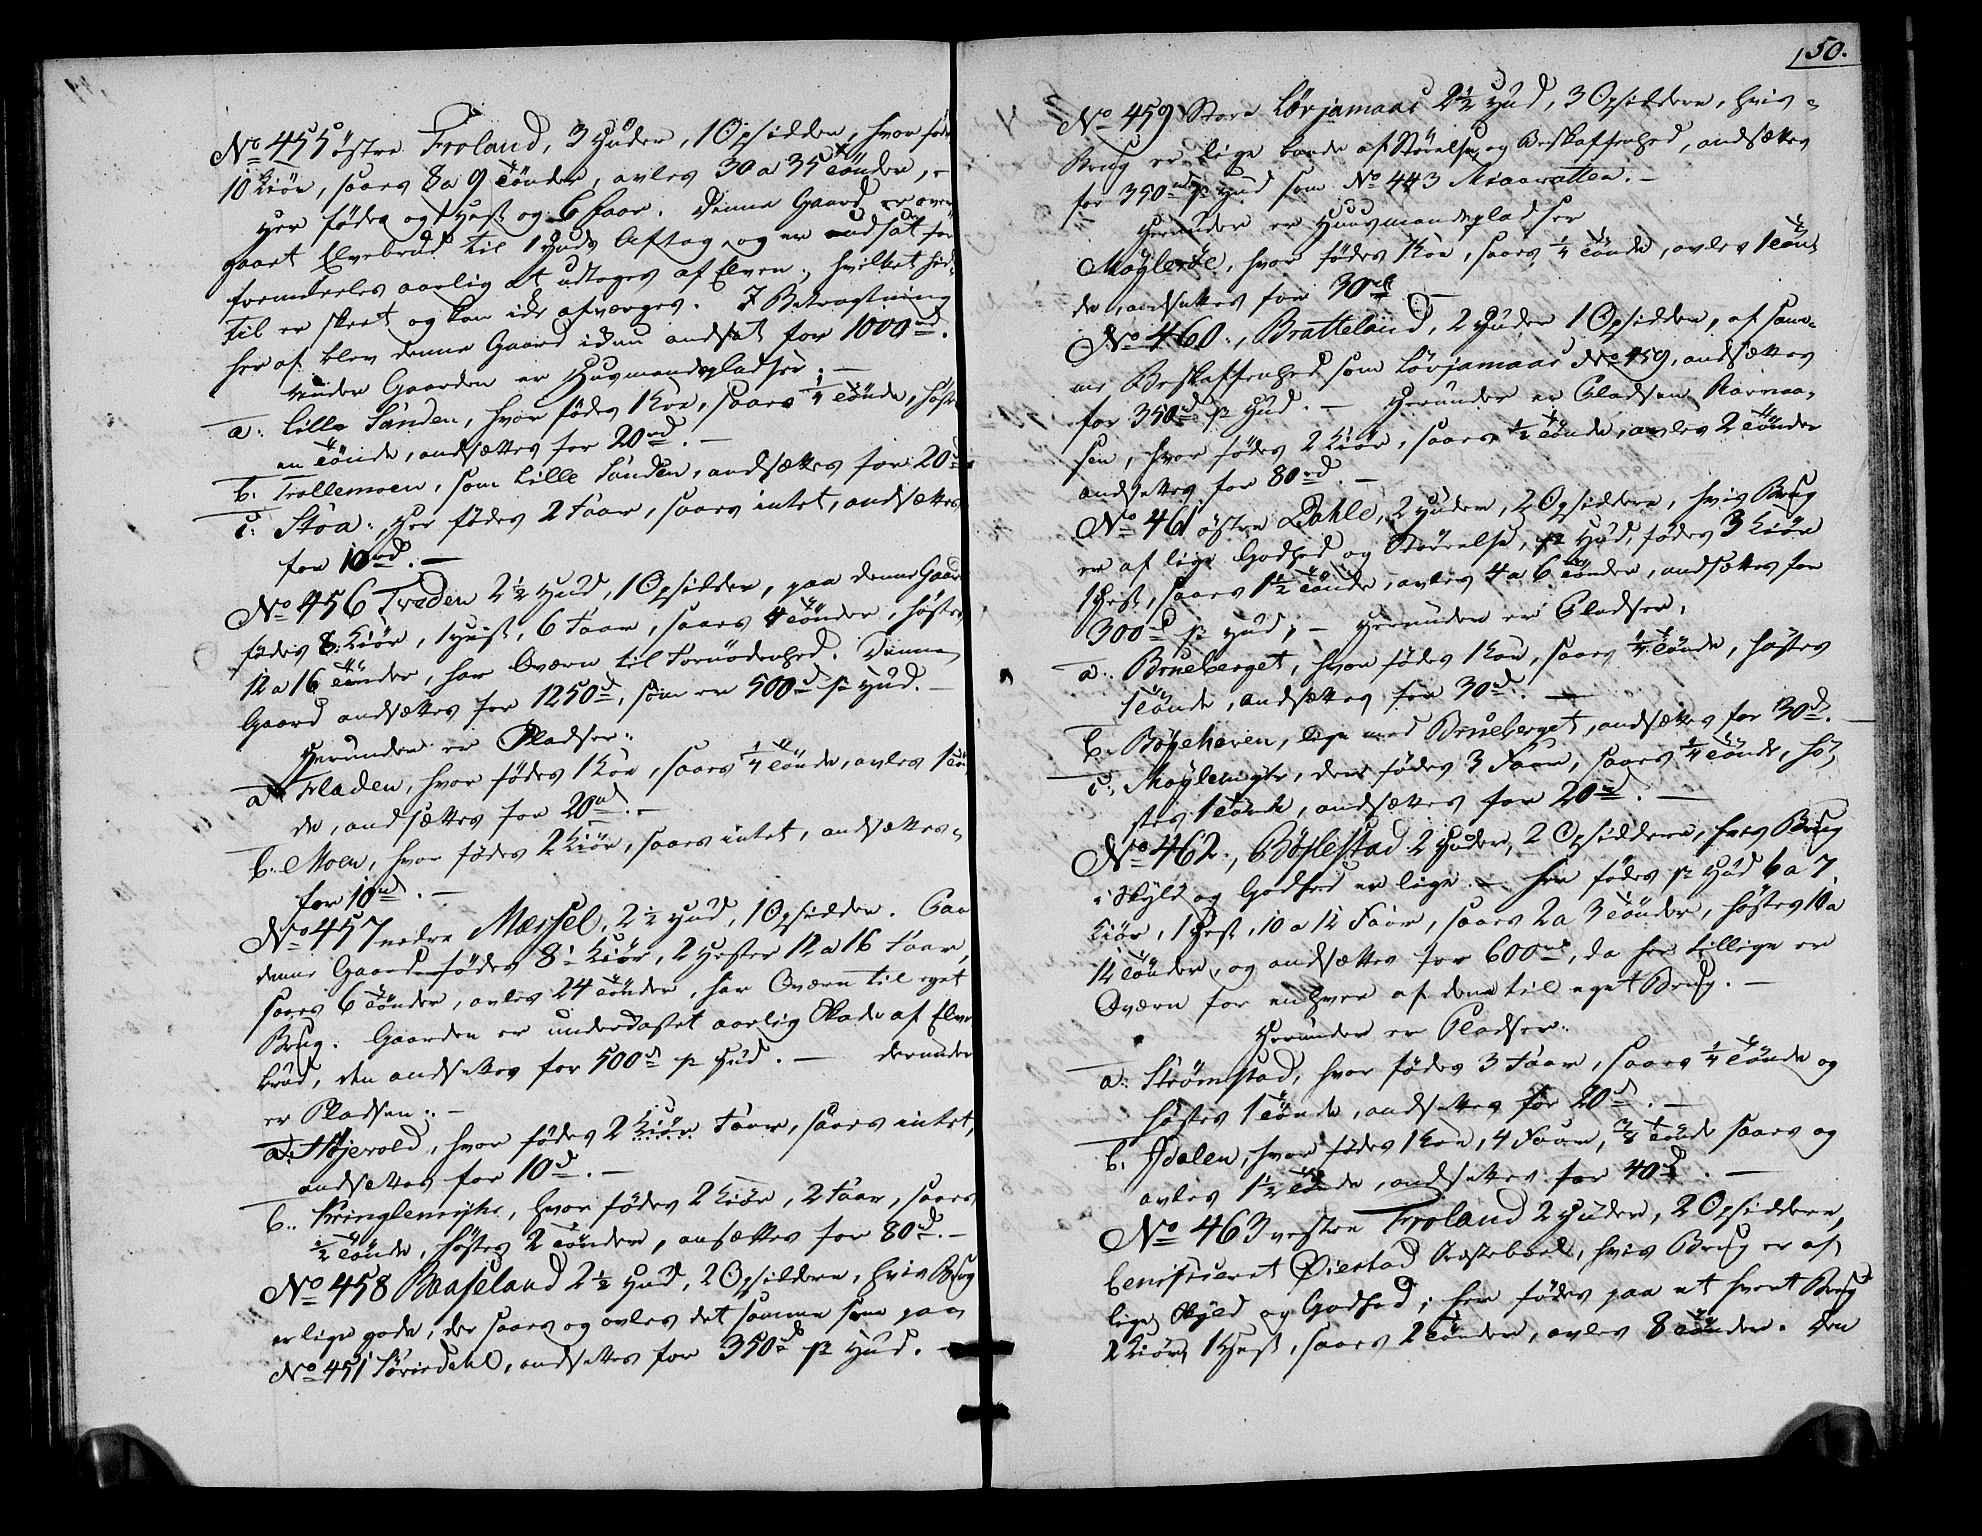 No 455 östre Froland, 3 Huder, 1 Opsidder, hvor födes
10 Kiör, saaes 8 a 9 Tönder, avles 30 a 35 Tönder,
Her födes og 1 Hest og 6 Faar. Denne Gaard er over
gaaet Elvebrud til 1 Huds Aftag og er udsat for
fremdeles aarlig at udtages af Elven, hvilket hid
til er skeet og kan ide afværges. I Betragtning
her af blev denne Gaard idnu andsat for 1000 rd.
Under Gaarden er Huusmandspladser:
a: Lille Sanden, hvor födes 1 Koe, saaes 1/4 Tönde, höstes
en Tönde, andsættes for 20 rd. —
b. Trollemoen, som Lille Sanden, andsættes for 20 rd
c: Stöa: Her födes 2 Faar, saaes intet, andsættes
for 10 rd. —
No 456 Traden 2 1/2 Hud, 1 Opsidder, paa denne Gaard
födes 8 Kiör, 1 Hest, 6 Faar, saaes 4 Tönder, höstes
12 a 16 Tönder, har Qværn til Fornödenhed. Denne
Gaard andsættes for 1250 d, som er 500 d pr Hud. —
Herunder er Pladser:
a. Fladen, hvor födes 1 Koe, saaes 1/4 Tönde, avles 1 Tön
de, andsættes for 20 rd. —
b. Moen, hvor födes 2 Kiör, saaes intet, andsættes
for 10 rd. —
No 457 nedre Messel, 2 1/2 Hud, 1 Opsidder. Paa
denne Gaard födes 8 Kiör, 2 Hester 12 a 16 Faar,
saaes 6 Tönder, avles 24 Tönder, har Qværn til eget
Brug. Gaarden er underkastet aarlig Skade af Elve
brud, den andsættes for 500 d pr Hud. — Derunder
er Pladsen: —
a. Höjevold, hvor födes 2 Kiör Faar, saaes intet,
andsættes for 10 d. —
b. Kringlemyhr, hvor födes 2 Kiör, 2 Faar, saaes
1/2 Tönde, höstes 2 Tönder, ansættes for 80 d. —
No 458 Baaseland 2 1/2 Hud, 2 Opsiddere, hvis Brug
er lige gode, der saaes og avles det samme som paa
No 451 Sörirdahl, andsættes for 350 d pr Hud. —
150.
No 459 Store Lörjamaas 2 1/2 Hud, 3 Opsiddere, hvis
Brug er lige baade af Störelse og Beskaffenhed, andsættes
for 350 rd pr Hud som No 443 Miaavatten. —
Herunder er Huusmandspladser
Moyleröe, hvor födes 1 Koe, saaes 1/4 Tönde, avles 1 Tön
de, andsættes for 30 rd. —
No 460., Bratteland, 2 Huder 1 Opsidder, af sam-
me Beskaffenhed som Lörjamaas No 459, andsættes
for 350 d pr Hud. — Herunder er Pladsen Ravnaa-
sen, hvor födes 2 Kiör, saaes 1/2 Tönde, avles 2 Tönder
andsættes for 80 rd. —
No 461 östre Dahle, 2 Huder, 2 Opsiddere, hvis Brug
er af lige Godhed og Störrelse, pr Hud födes 3 Kiör
1 Hest, saaes 1 1/2 Tönde, avles 4 a 6 Tönder, andsættes for
300 d pr Hud; — Herunder er Pladser:
a. Brueberget, hvor födes 1 Koe, saaes 1/4 Tönde, höstes
1 Tönde, andsættes for 30 d. —
b. Böyehaven, lige med Brueberget, andsættes for 30 d. —
c: Moylemyr, der födes 3 Faar, saaes 1/4 Tönde, hö
stes 1 Tönde, andsættes for 20 d. —
No 462., Böylestad 2 Huder, 2 Opsiddere, hvis Brug
i Skyld og Godhed er lige. — Her födes pr Hud 6 a 7
Kiör, 1 Hest, 10 a 12 Faar, saaes 2 a 3 Tönder, höstes 10 a
12 Tönder, og andsættes for 600 rd, da her tillige er
Qværn for enhver af dem til eget Brug. —
Herunder er Pladser:
a: Strömstad, hvor födes 3 Faar, saaes 1/4 Tönde og
höstes 1 Tönde, andsættes for 20 d. —
b. Jdalen, hvor födes 1 Koe, 4 Faar, 3/8 Tönde saaes og
avles 1 1/2 Tönde, andsættes for 40 d. —
No 463 vestre Froland 2 Huder, 2 Opsiddere,
beneficeret Öiestad Præstebord, hvis Brug er af
lige Skyld og Godhed; her födes paa et hvert Brug
2 Kiör, 1 Hest, saaes 2 Tönder, avles 8 Tönder. Den